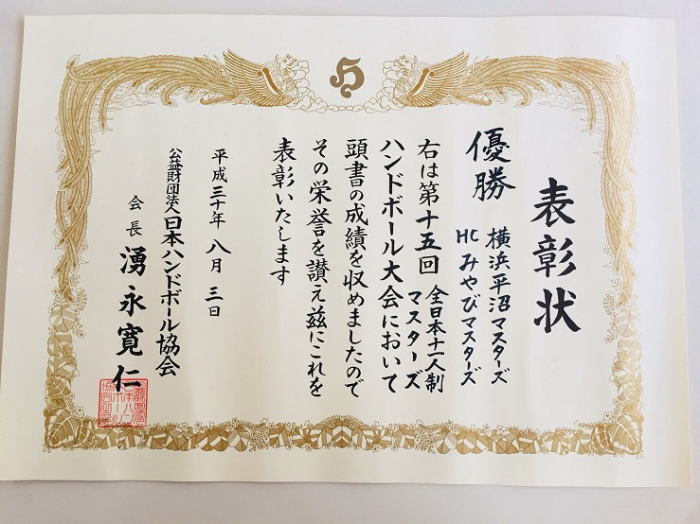 表彰状
優勝 横浜平沼マスターズ
HCみやびマスターズ
右は第十五回 全日本十一人制
マスターズ
ハンドボール大会において
頭書の成績を収めましたので
その栄誉を讃え茲にこれを
表彰いたします
平成三十年 八月 三日
公益財団法人日本ハンドボール協会
会長 湧永寛仁